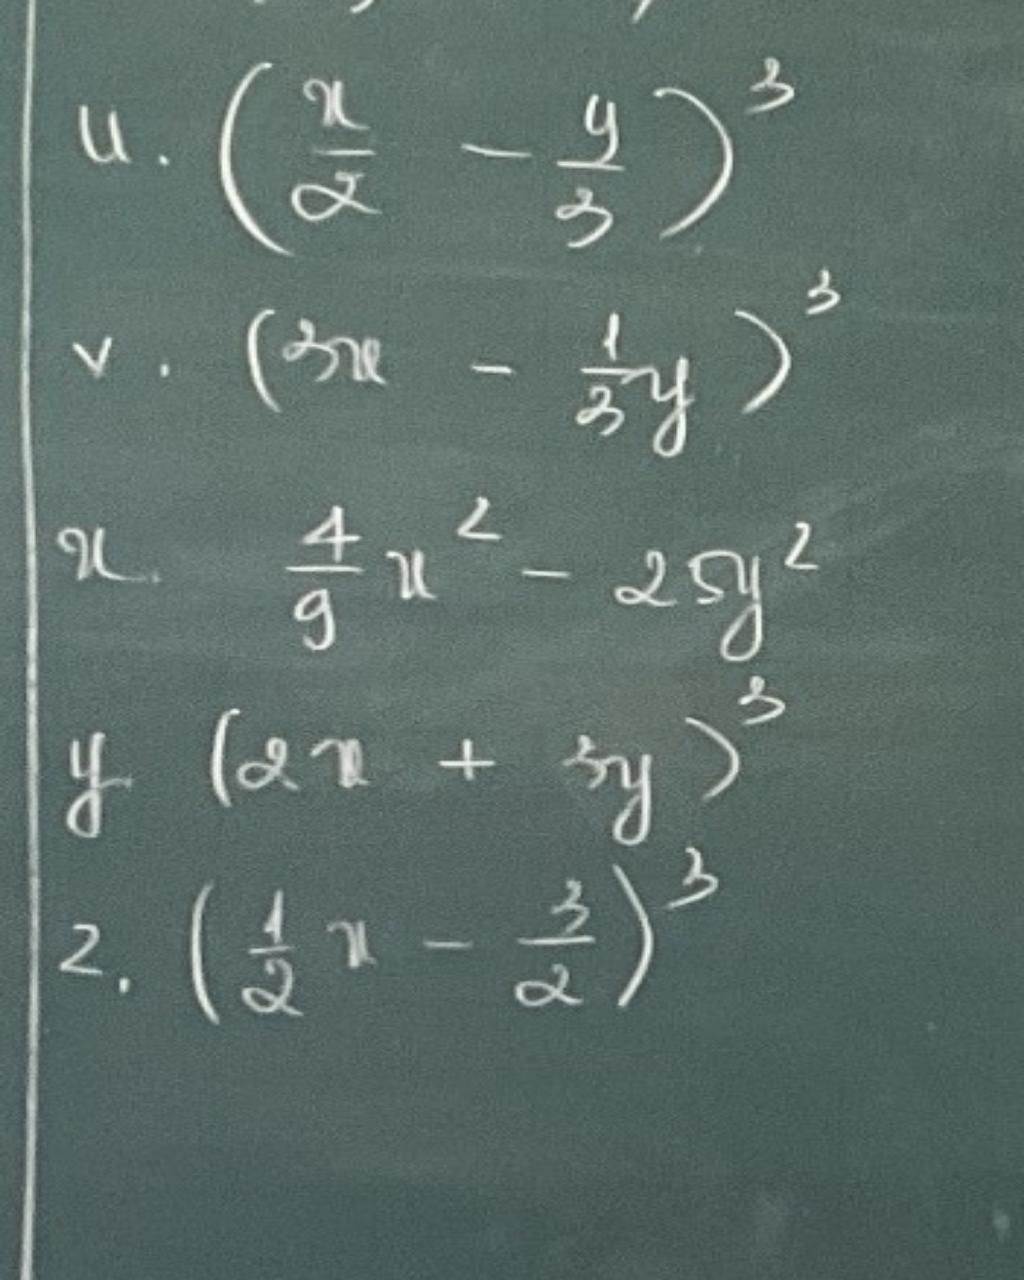 u. (x/2 - y/3)³
v. (3x - 1/3 y)³
x. 4/9 x² - 25y²
y (2x + 3y)³
z. (1/2 x - 3/2)³